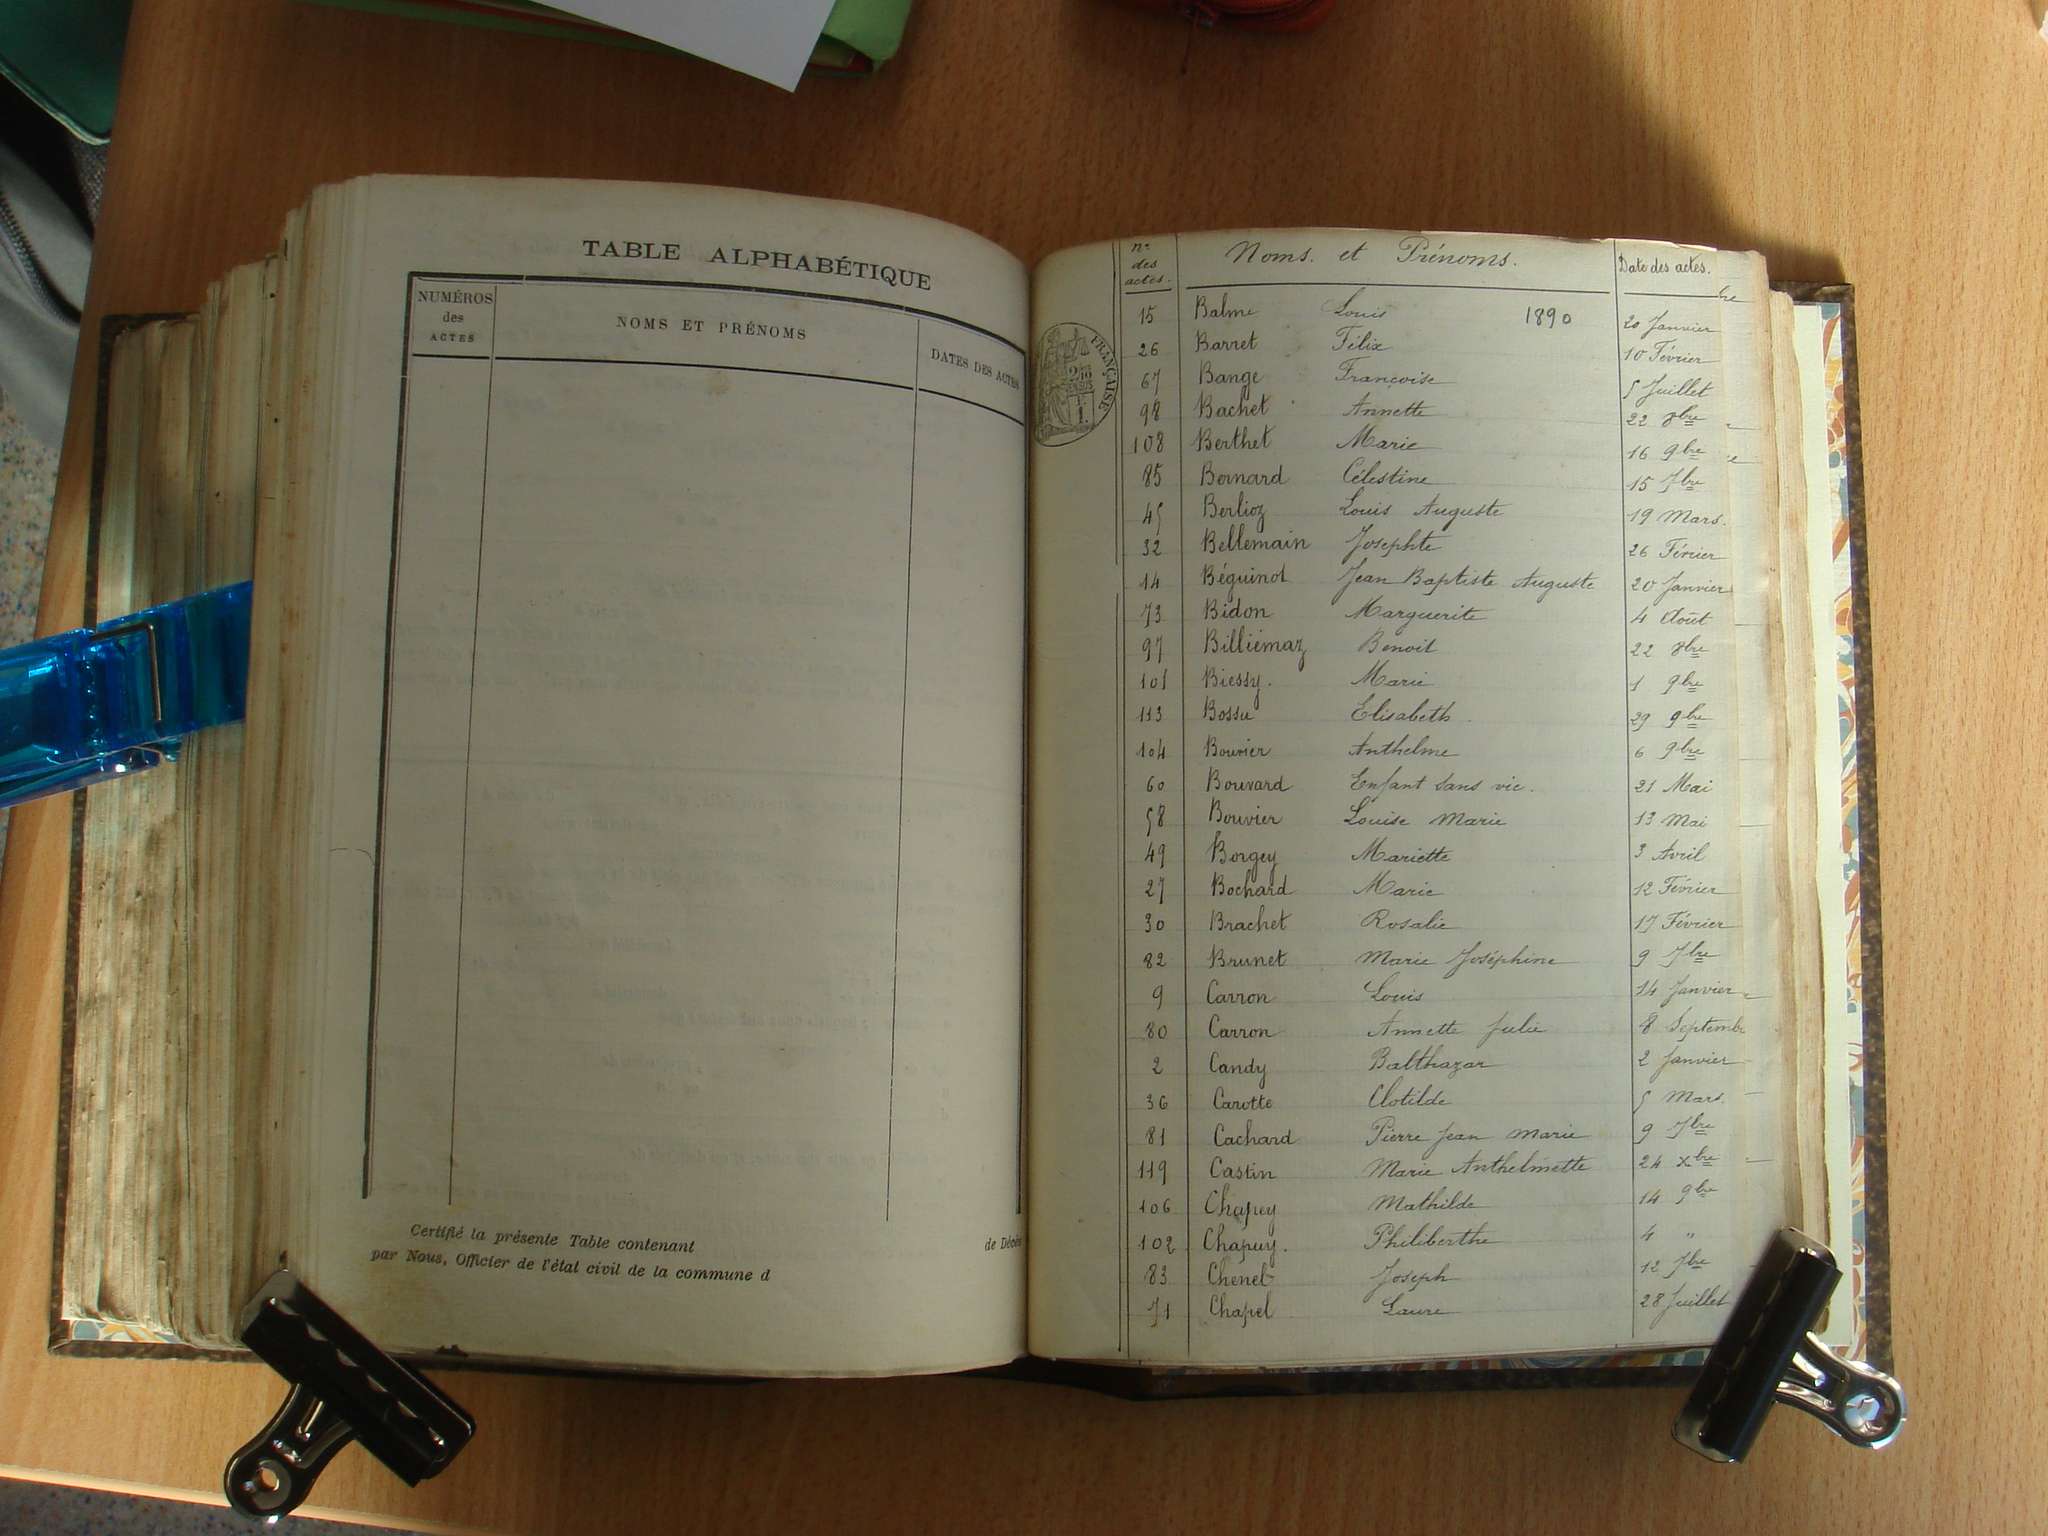 TABLE ALPHABÉTIQUE
NUMÉROS des ACTES NOMS ET PRÉNOMS DATES DES ACTES
Certifié la présente Table contenant de Décès
par Nous, Officier de l'état civil de la commune d
FRANÇAISE
nos des actes. Noms. et Prénoms. Date des actes.
15 Balme Louis 1890 20 Janvier
26 Barret Félix 10 Février
67 Bange Françoise 5 Juillet
98 Bachet Annette 22 8bre
108 Berthet Marie 16 9bre
85 Bernard Célestine 15 7bre
45 Berlioz Louis Auguste 19 Mars.
32 Bellemain Josephte 26 Février
14 Béguinot Jean Baptiste Auguste 20 Janvier
73 Bidon Marguerite 4 Août
97 Billiémaz Benoit 22 8bre
101 Biessy. Marie 1 9bre
113 Bossu Elisabeth. 29 9bre
104 Bouvier Anthelme 6 9bre
60 Bouvard Enfant sans vie. 21 Mai
58 Bouvier Louise Marie 13 Mai
49 Borgey Mariette 3 Avril
27 Bochard Marie 12 Février
30 Brachet Rosalie 17 Février
82 Brunet Marie Joséphine 9 7bre
9 Carron Louis 14 Janvier
80 Carron Annette Julie 8 Septembr
2 Candy Balthazar 2 Janvier
36 Carotte Clotilde 5 Mars.
81 Cachard Pierre Jean Marie 9 7bre
119 Castin Marie Anthelmette 24 xbre
106 Chapey Mathilde 14 9bre
102 Chapuy. Philiberthe 4 "
83 Chenet Joseph 12 7bre
71 Chapel Laure 28 Juillet